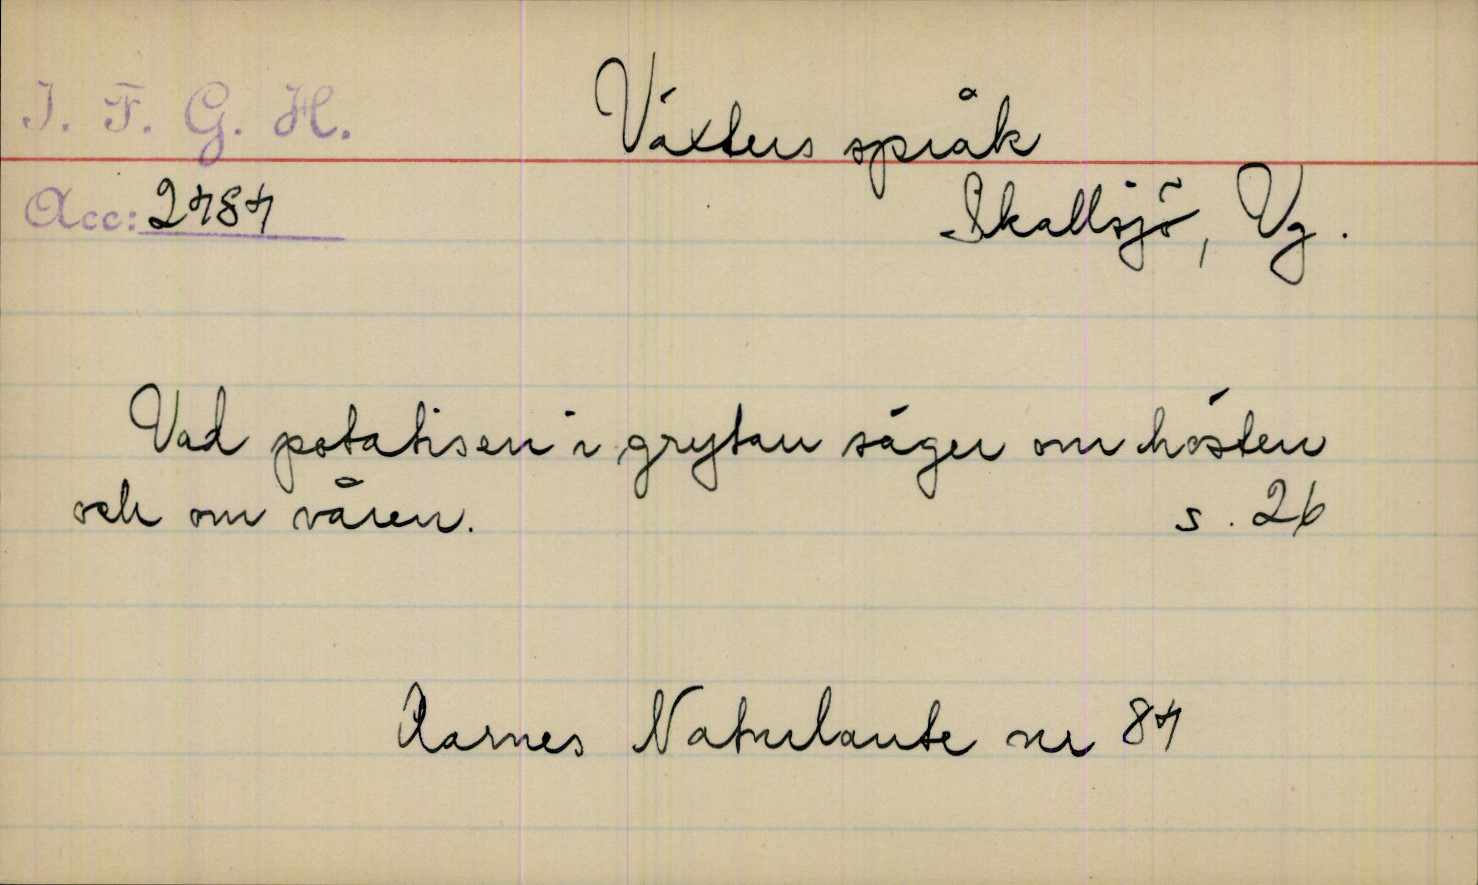 I. F. G. H.
Växters språk
Acc: 2484
Skallsjö, Vg.
Vad potatisen i grytan säger om hösten
och om våren. s. 26
Aarnes Naturlaute nr 84